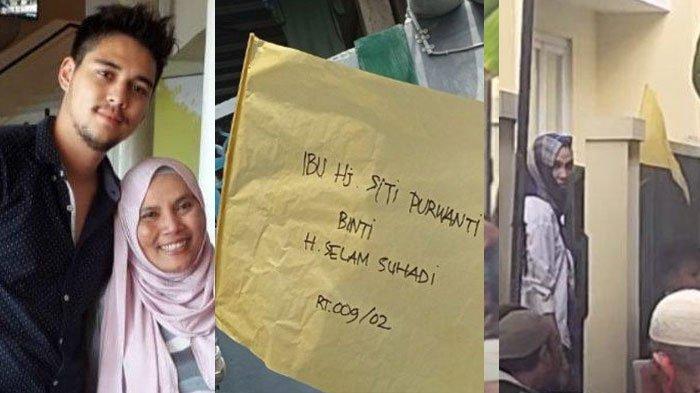 IBU Hj. SITI PURWANTI
BINTI
H. SELAM SUHADI
RT.009/02